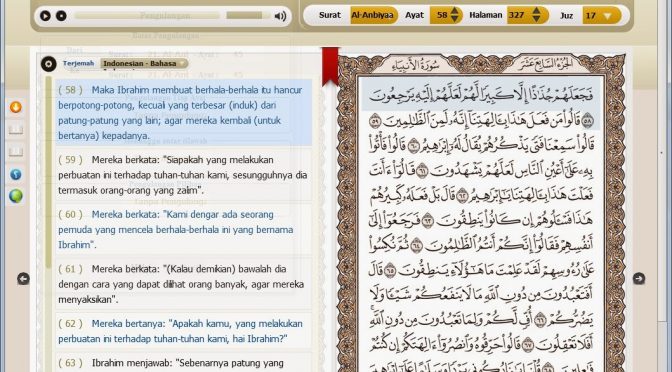 Surat Al-Anbiyaa Ayat 58 Halaman 327 Juz 17
Terjemah Indonesian - Bahasa
( 58 ) Maka Ibrahim membuat berhala-berhala itu hancur
berpotong-potong, kecuali yang terbesar (induk) dari
patung-patung yang lain; agar mereka kembali (untuk
bertanya) kepadanya.
( 59 ) Mereka berkata: "Siapakah yang melakukan
perbuatan ini terhadap tuhan-tuhan kami, sesungguhnya dia
termasuk orang-orang yang zalim".
( 60 ) Mereka berkata: "Kami dengar ada seorang
pemuda yang mencela berhala-berhala ini yang bernama
Ibrahim".
( 61 ) Mereka berkata: "(Kalau demikian) bawalah dia
dengan cara yang dapat dilihat orang banyak, agar mereka
menyaksikan".
( 62 ) Mereka bertanya: "Apakah kamu, yang melakukan
perbuatan ini terhadap tuhan-tuhan kami, hai Ibrahim?"
( 63 ) Ibrahim menjawab: "Sebenarnya patung yang
الجزء السابع عشر سورة الأنبياء
فَجَعَلَهُمْ جُذَاذًا إِلَّا كَبِيرًا لَّهُمْ لَعَلَّهُمْ إِلَيْهِ يَرْجِعُونَ
٥٨ قَالُوا مَن فَعَلَ هَٰذَا بِآلِهَتِنَا إِنَّهُ لَمِنَ الظَّالِمِينَ ٥٩
قَالُوا سَمِعْنَا فَتًى يَذْكُرُهُمْ يُقَالُ لَهُ إِبْرَاهِيمُ ٦٠ قَالُوا فَأْتُوا
بِهِ عَلَىٰ أَعْيُنِ النَّاسِ لَعَلَّهُمْ يَشْهَدُونَ ٦١ قَالُوا أَأَنتَ
فَعَلْتَ هَٰذَا بِآلِهَتِنَا يَا إِبْرَاهِيمُ ٦٢ قَالَ بَلْ فَعَلَهُ كَبِيرُهُمْ
هَٰذَا فَاسْأَلُوهُمْ إِن كَانُوا يَنطِقُونَ ٦٣ فَرَجَعُوا إِلَىٰ
أَنفُسِهِمْ فَقَالُوا إِنَّكُمْ أَنتُمُ الظَّالِمُونَ ٦٤ ثُمَّ نُكِسُوا
عَلَىٰ رُءُوسِهِمْ لَقَدْ عَلِمْتَ مَا هَٰؤُلَاءِ يَنطِقُونَ ٦٥ قَالَ
أَفَتَعْبُدُونَ مِن دُونِ اللَّهِ مَا لَا يَنفَعُكُمْ شَيْئًا وَلَا
يَضُرُّكُمْ ٦٦ أُفٍّ لَّكُمْ وَلِمَا تَعْبُدُونَ مِن دُونِ اللَّهِ
أَفَلَا تَعْقِلُونَ ٦٧ قَالُوا حَرِّقُوهُ وَانصُرُوا آلِهَتَكُمْ إِن كُنتُمْ